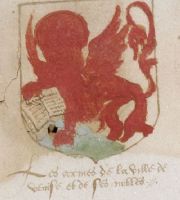 Les armes de la ville de
venise et de ses nobles